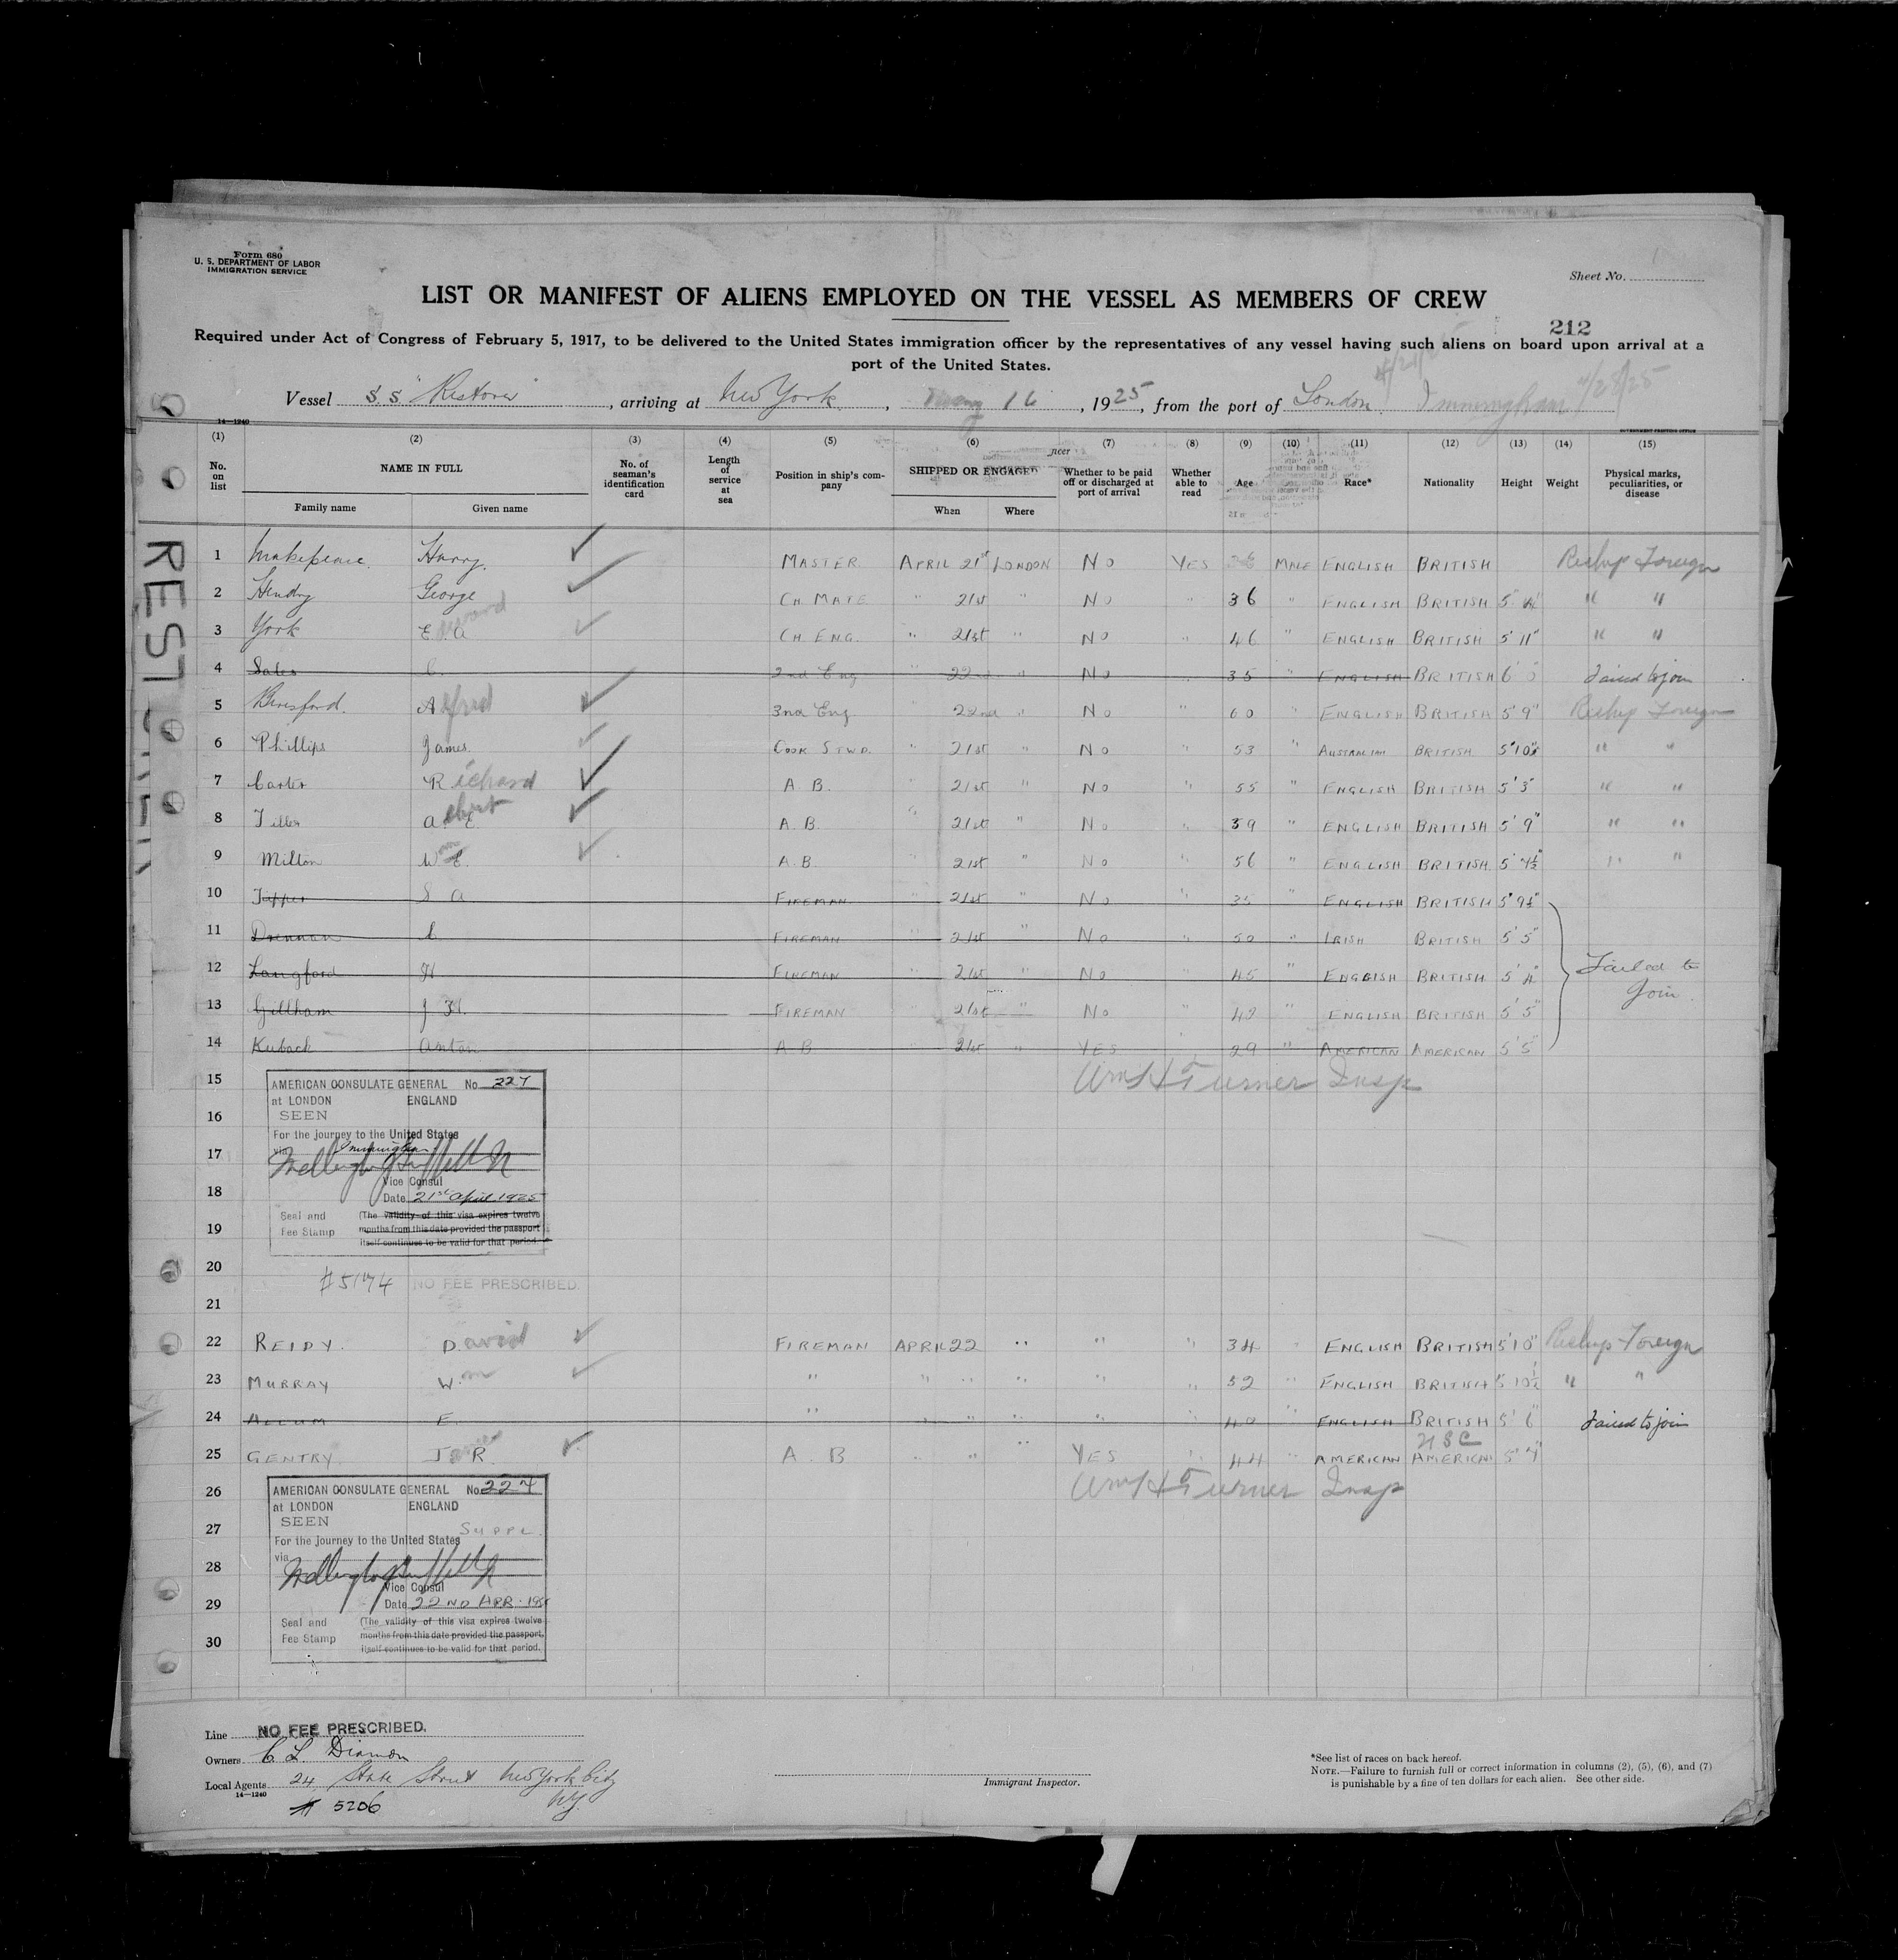 Form 680
U. S. DEPARTMENT OF LABOR
IMMIGRATION SERVICE
Sheet No.
LIST OR MANIFEST OF ALIENS EMPLOYED ON THE VESSEL AS MEMBERS OF CREW
212
Required under Act of Congress of February 5, 1917, to be delivered to the United States immigration officer by the representatives of any vessel having such aliens on board upon arrival at a
port of the United States.
Vessel S.S. , arriving at New York, May 16, 1925, from the port of London. Immingham 4/28/25
14—1240
GOVERNMENT PRINTING OFFICE
(1) (2) (3) (4) (5) (6) (7) (8) (9) (10) (11) (12) (13) (14) (15)
No. on list NAME IN FULL No. of seaman's identification card Length of service at sea Position in ship's company SHIPPED OR ENGAGED Whether to be paid off or discharged at port of arrival Whether able to read Age Race* Nationality Height Weight Physical marks, peculiarities, or disease
Family name Given name When Where
1 Makepeace. Harry. MASTER APRIL 21st LONDON No YES 36 MALE ENGLISH BRITISH Reship Foreign
2 Hendry George CH. MATE " 21st " No " 36 " ENGLISH BRITISH 5' " "
3 York Edward A CH ENG. " 21st " No " 46 " ENGLISH BRITISH 5' 11" " "
4 Sales C. 2nd Eng " 22nd " No " 35 " ENGLISH BRITISH 6' 0 Failed to join
5 Beresford. Alfred 3nd Eng " 22nd " No " 60 " ENGLISH BRITISH 5' 9" Reship Foreign
6 Phillips James. COOK STWD. " 21st " No " 53 " AUSTRALIAN BRITISH 5' " "
7 Carter Richard A. B. 21st " No " 55 " ENGLISH BRITISH 5' 3" " "
8 Albert E. A. B. " 21st " No " 39 " ENGLISH BRITISH 5' 9" " "
9 Milton Wm E. A. B. " 21st " No " 56 " ENGLISH BRITISH 5' 4½" " "
10 Tapper S A FIREMAN " 21st " No " 35 " ENGLISH BRITISH 5' 9½"
11 Drennan C FIREMAN " 21st " No " 50 " IRISH BRITISH 5' 5"
12 Langford H FIREMAN " 21st " No " 45 " ENGLISH BRITISH 5' 4" Failed to
Join.
13 Gillham J. H. FIREMAN 21st " No " 42 " ENGLISH BRITISH 5' 5"
14 Kuback Anton A B 21st " YES " 29 " AMERICAN AMERICAN 5' 5"
15 Wm H Turner Insp
AMERICAN CONSULATE GENERAL No. 227
at LONDON ENGLAND
16 SEEN
For the journey to the United States
17 via Immingham
Vice Consul
18 Date 21st April 1925
19 Seal and Fee Stamp (The validity of this visa expires twelve
months from this date provided the passport
itself continues to be valid for that period.
20 #5174 NO FEE PRESCRIBED.
21
22 REIDY. David FIREMAN APRIL 22 " " " 34 " ENGLISH BRITISH 5' 10" Reship Foreign
23 MURRAY Wm " " " " " " 52 " ENGLISH BRITISH 5' 10½" " "
24 ALLUM E. " " " " " 40 " ENGLISH BRITISH 5' 6" Failed to join
USC
25 GENTRY. J R. A. B " " " YES " 44 " AMERICAN AMERICAN 5'
26 Wm H Turner Insp
AMERICAN CONSULATE GENERAL No. 227
at LONDON ENGLAND
27 SEEN SUPPL.
For the journey to the United States
28 via
Vice Consul
29 Date 22ND APR. 1925
30 Seal and Fee Stamp (The validity of this visa expires twelve
months from this date provided the passport
itself continues to be valid for that period.
Line NO FEE PRESCRIBED.
Owners C L Diamon
Local Agents 24 State Street New York City
14—1240
N.Y.
# 5206
Immigrant Inspector.
*See list of races on back hereof.
NOTE.—Failure to furnish full or correct information in columns (2), (5), (6), and (7)
is punishable by a fine of ten dollars for each alien. See other side.